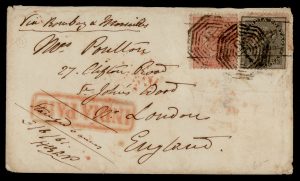 Via Bombay & Marseilles
Miss Poulton
27. Clifton Road
St Johns Wood
London
England
INDIA PAID